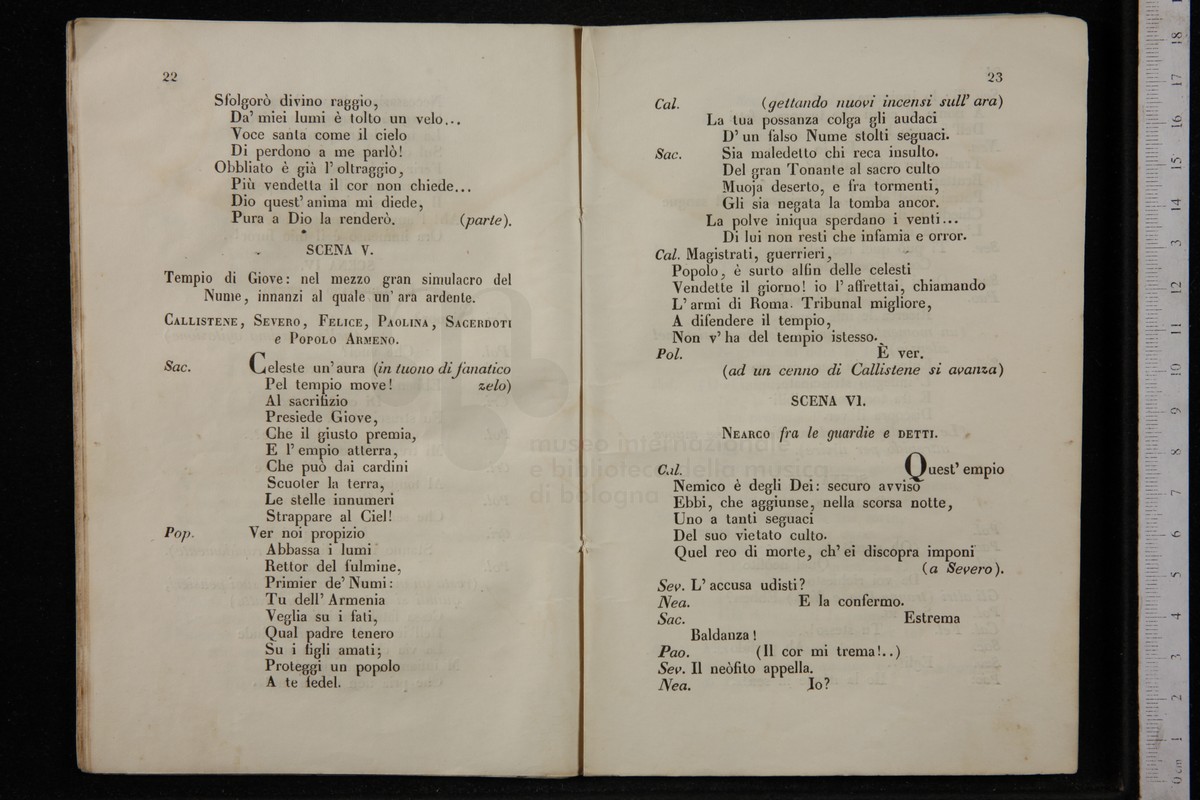 22
Sfolgorò divino raggio,
Da' miei lumi è tolto un velo...
Voce santa come il cielo
Di perdono a me parlò!
Obbliato è già l' oltraggio,
Più vendetta il cor non chiede...
Dio quest' anima mi diede,
Pura a Dio la renderò. (parte).
SCENA V.
Tempio di Giove: nel mezzo gran simulacro del
Nume, innanzi al quale un' ara ardente.
CALLISTENE, SEVERO, FELICE, PAOLINA, SACERDOTI
e POPOLO ARMENO.
Sac. Celeste un' aura (in tuono di fanatico
Pel tempio move! zelo)
Al sacrifizio
Presiede Giove,
Che il giusto premia,
E l' empio atterra,
Che può dai cardini
Scuoter la terra,
Le stelle innumeri
Strappare al Ciel!
Pop. Ver noi propizio
Abbassa i lumi
Rettor del fulmine,
Primier de' Numi:
Tu dell' Armenia
Veglia su i fati,
Qual padre tenero
Su i figli amati;
Proteggi un popolo
A te fedel.
23
Cal. (gettando nuovi incensi sull' ara)
La tua possanza colga gli audaci
D' un falso Nume stolti seguaci.
Sac. Sia maledetto chi reca insulto.
Del gran Tonante al sacro culto
Muoja deserto, e fra tormenti,
Gli sia negata la tomba ancor.
La polve iniqua sperdano i venti...
Di lui non resti che infamia e orror.
Cal. Magistrati, guerrieri,
Popolo, è surto alfin delle celesti
Vendette il giorno! io l' affrettai, chiamando
L' armi di Roma. Tribunal migliore,
A difendere il tempio,
Non v' ha del tempio istesso.
Pol. È ver.
(ad un cenno di Callistene si avanza)
SCENA VI.
NEARCO fra le guardie e DETTI.
Cal. Quest' empio
Nemico è degli Dei: securo avviso
Ebbi, che aggiunse, nella scorsa notte,
Uno a tanti seguaci
Del suo vietato culto.
Quel reo di morte, ch' ei discopra imponi
(a Severo).
Sev. L' accusa udisti?
Nea. E la confermo.
Sac. Estrema
Baldanza!
Pao. (Il cor mi trema!..)
Sev. Il neòfito appella.
Nea. Io?
museo internazionale
e biblioteca della musica
di bologna
0 cm 1 2 3 4 5 6 7 8 9 10 11 12 13 14 15 16 17 18